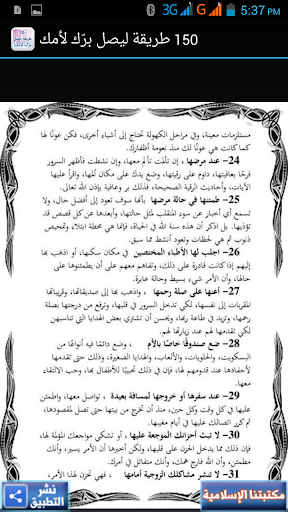 3G G 5:37 PM
150 طريقة ليصل برّك لأمك
مستلزمات معينة، وفي مراحل الكهولة تحتاج إلى أشياء أخرى، فكن عونًا لها
كما كانت هي عونًا لك منذ نعومة أظفارك.
24- عند مرضها ، إن تألمت تألم معها، وإن نشطت فأظهر السرور
وفرحك بعافيتها، وداوم على رقيتها، وضع يدك على مكان ألمها، واقرأ عليها
الآيات، وأحاديث الرقية الصحيحة، فذلك لو رعافية بإذن الله تعالى.
25- طمئنها في حالة مرضها بأنها سوف تعود إلى أفضل حال، ولا
تسمع أي أخبار عن سوء المنقلب مثل حالتها، وأبعدها عن كل قصص قد
تؤذيها. بل اذكر أن هذه سنة الله في الحياة، فإنها هي محطة ابتلاء وتمحيص
ذنوب ثم هي لحظات وتعود أنشط مما سبق.
26- اجلب لها الأطباء المختصين في مكان سكنها، أو اذهب بها
إليهم إذا كانت قادرة على ذلك، وتفاهم معهم على أن يطمئنوها على
حالها، وأن الأمر شيء بسيط وحالة عابرة.
27- أعنها على صلة رحمها ، بأن تذهب بها إلى صديقاتها، وقريباتها
المقربات إلى نفسها، لكي تدخل السرور في قلبها، وترفع من درجتها بصلة
رحمها، وتزيد في طاعة ربها، ويحسن أن تشتري بعض الهدايا التي تناسبهن
لكي تقدمها لهم عند زيارتها لهم.
28- ضع صندوقًا خاصًا بالأم ، وضع فيه وضع دائمًا فيه أنواعًا من
البسكويت، والحلويات، والألعاب، والهدايا الصغيرة، وذلك حتى تقدمها
لأحفادها عند قدومهم لها، في ذلك إدخال للسرور عليها وعليهم.
29- عند سفرها أو خروجها لمسافة بعيدة ، تواصل معها، واطمئن
عليها في كل وقت وكل حين، منذ أن تخرج من بيتها حتى تصل لمقصودها،
فذلك يسعدها ويدخل السرور على قلبها.
30- لا تبث أحزانك الموجعة عليها ، أو تشكي مواجعك المؤلمة لها،
فإن ذلك يضيق صدرها، ويزيد همها، وإن كانت تعلم بشيء من ذلك
فطمئنها، وأن الله فارج همك، وأنك متفائل في أمرك.
31- لا تنشر مشاكلك الزوجية أمامها ، فهي تحزن لهذا الأمر
نشر
التطبيق
مكتبتنا الإسلامية